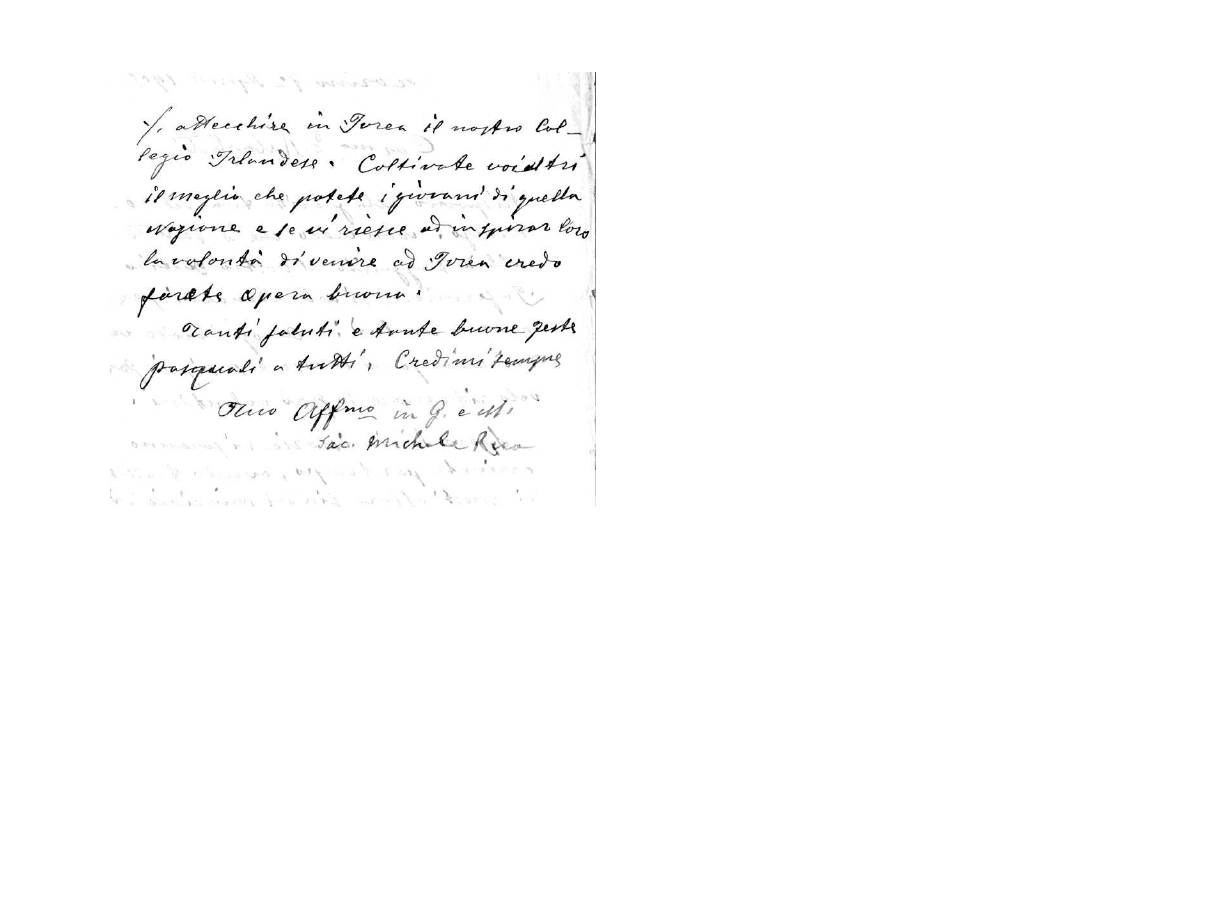 ·/. attecchire in Ivrea il nostro Col-
legio Irlandese. Coltivate voialtri
il meglio che potete i giovani di quella
Nazione e se vi riesce ad inspirar loro
la volontà di venire ad Ivrea credo
farete Opera buona.
Tanti saluti e tante buone feste
pasquali a tutti, Credimi sempre
Tuo Affmo in G. e M.
Sac. Michele Rua